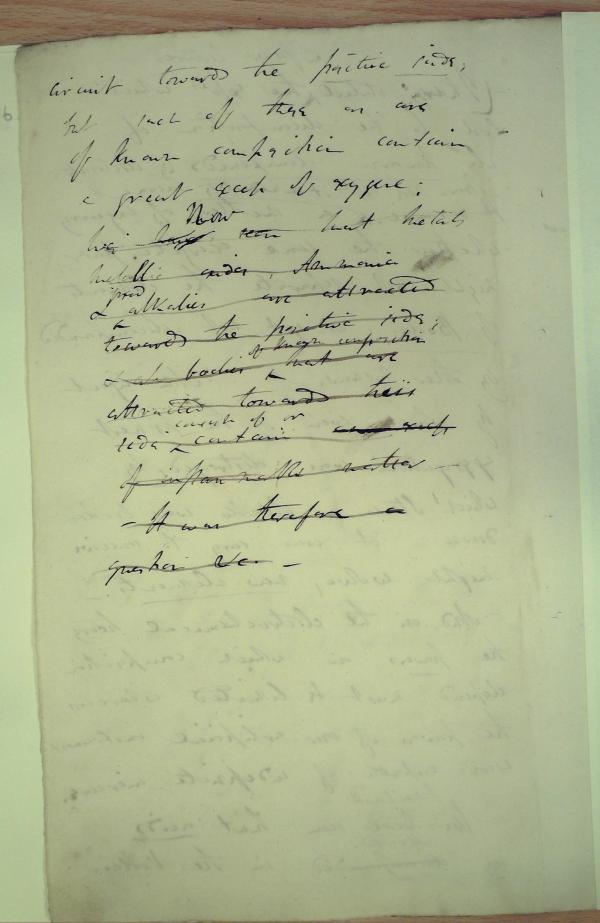 circuit towards the positive side;
but such of these as are
of known composition contain
a great excess of oxygene;
Now
that metals
metallic oxides, Ammonia
fixed
& alkalies are attracted
towards the positive side;
of known composition
& bodies that are
attracted towards this
side contain an excess
of inflammable matter —
– It was therefore a
question &c. –